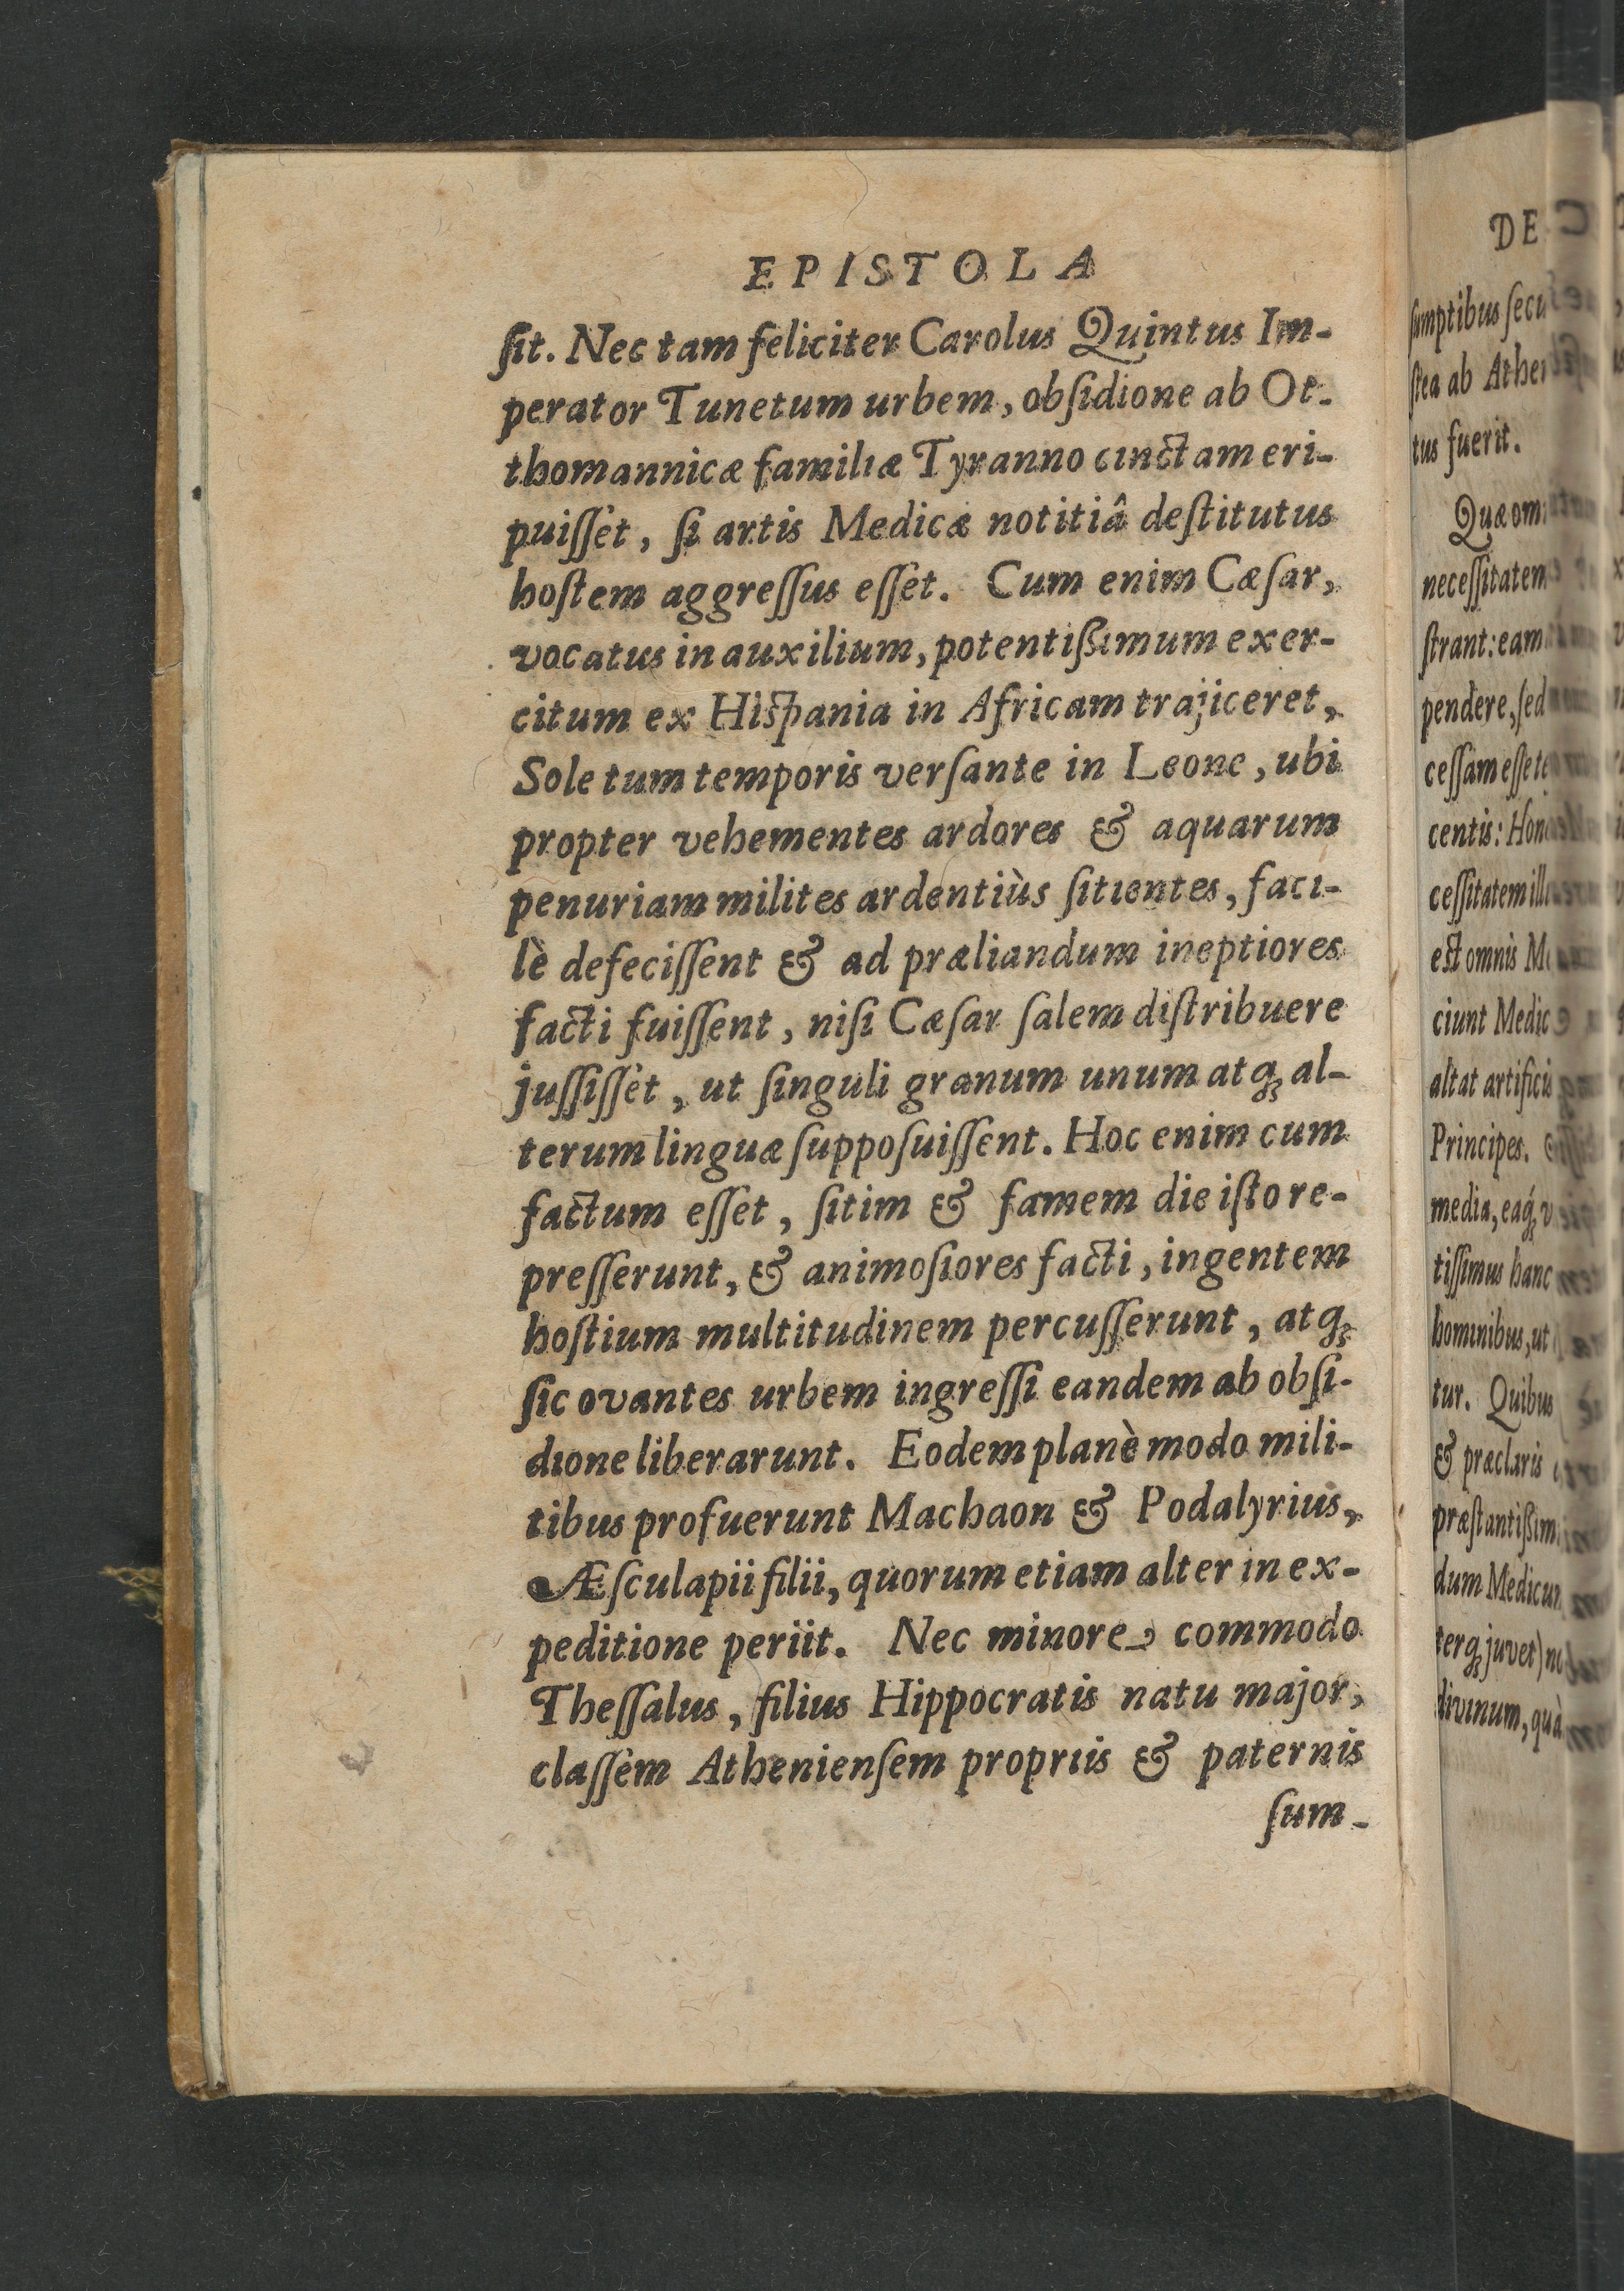 EPISTOLA
ſit. Nec tam feliciter Carolus Quintus Im-
perator Tunetum urbem, obſidione ab Ot-
thomannicæ familiæ Tyranno cinctam eri-
puiſſet, ſi artis Medicæ notitiâ deſtitutus
hoſtem aggreſſus eſſet. Cum enim Cæſar,
vocatus in auxilium, potentiſsimum exer-
citum ex Hiſpania in Africam trajiceret,
Sole tum temporis verſante in Leone, ubi
propter vehementes ardores & aquarum
penuriam milites ardentiùs ſitientes, faci-
lè defeciſſent & ad præliandum ineptiores
facti fuiſſent, niſi Cæſar ſalem diſtribuere
juſſiſſet, ut ſinguli granum unum atq; al-
terum linguæ ſuppoſuiſſent. Hoc enim cum
factum eſſet, ſitim & famem die iſto re-
preſſerunt, & animoſiores facti, ingentem
hoſtium multitudinem percuſſerunt, atq;
ſic ovantes urbem ingreſſi eandem ab obſi-
dione liberarunt. Eodem planè modo mili-
tibus profuerunt Machaon & Podalyrius,
Æſculapii filii, quorum etiam alter in ex-
peditione periit. Nec minore commodo
Theſſalus, filius Hippocratis natu major,
claſſem Athenienſem propriis & paternis
ſum-
DE
ſumptibus ſecu
ſtea ab Athen
tus fuerit.
Quæ om
neceſſitatem
ſtrant: eam
pendere, ſed
ceſſam eſſe
centis: Hon
ceſſitatem ill
eſt omnis M
ciunt Medic
altat artifici
Principes.
media, eaq́; v
tiſſimus hanc
hominibus, ut
tur. Quibus
& præclaris
præſtantiſsim
dum Medicum
terq; juvet) no
divinum, quà